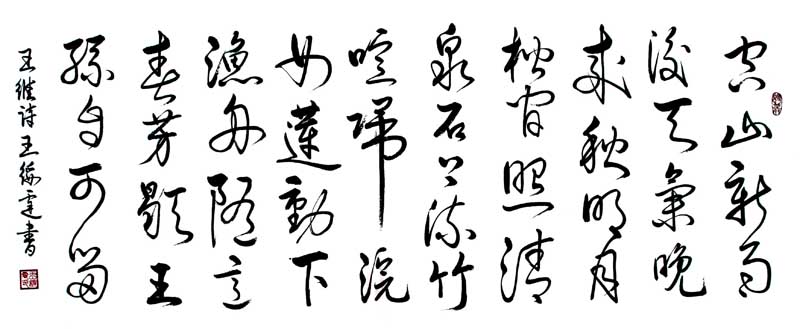 空山新雨
後天氣晚
来秋明月
松間照清
泉石上流竹
喧歸浣
女蓮動下
漁舟随意
春芳歇王
孫自可留
王維诗王霆書